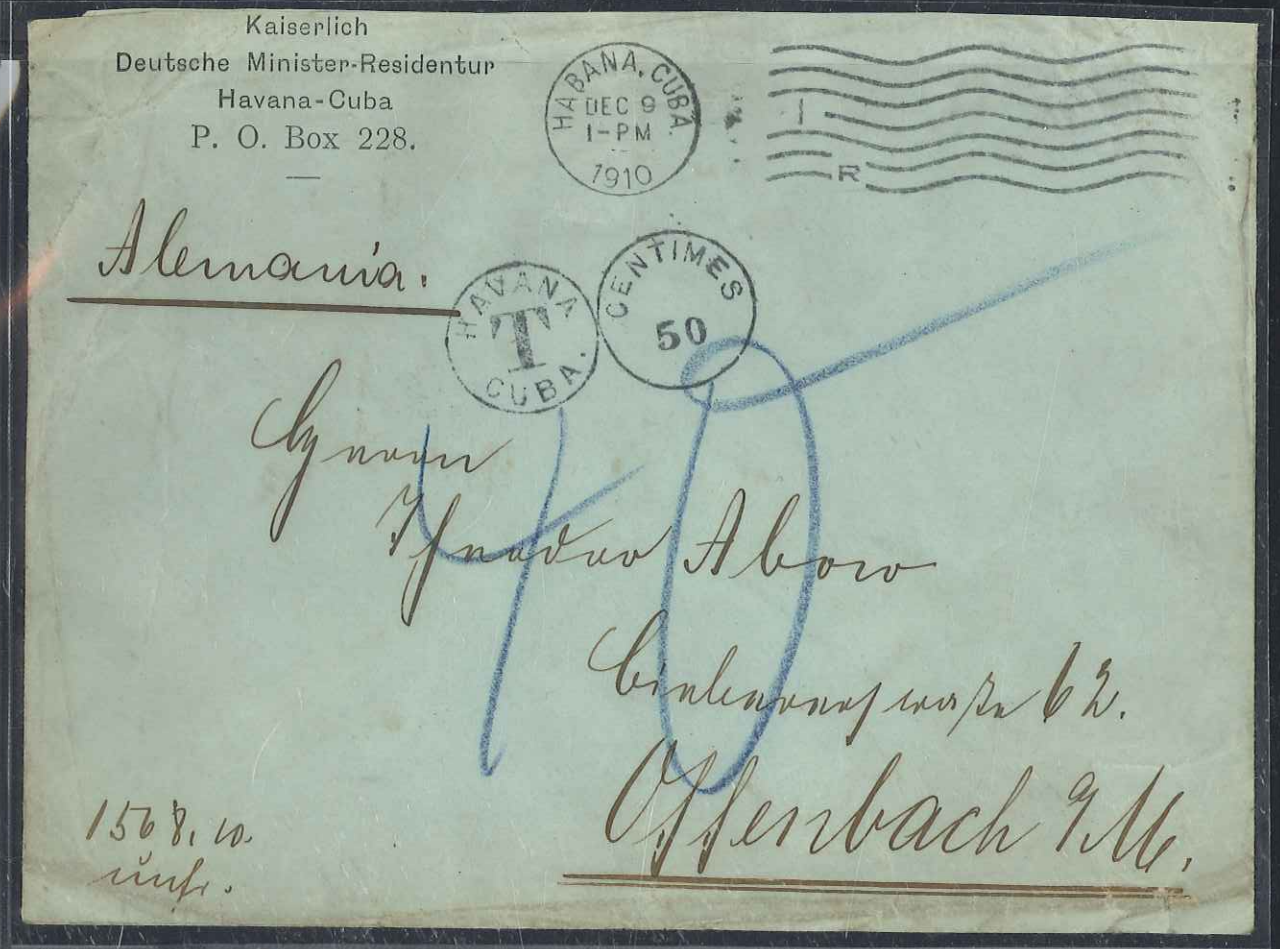 Kaiserlich
Deutsche Minister-Residentur
Havana-Cuba
P. O. Box 228.
HABANA, CUBA.
DEC 9
1-PM
1910
R
Alemania.
HAVANA
T
CUBA.
CENTIMES
50
40
Herrn
Theodor
62.
Offenbach a/M.
1568. 10.
unfr.